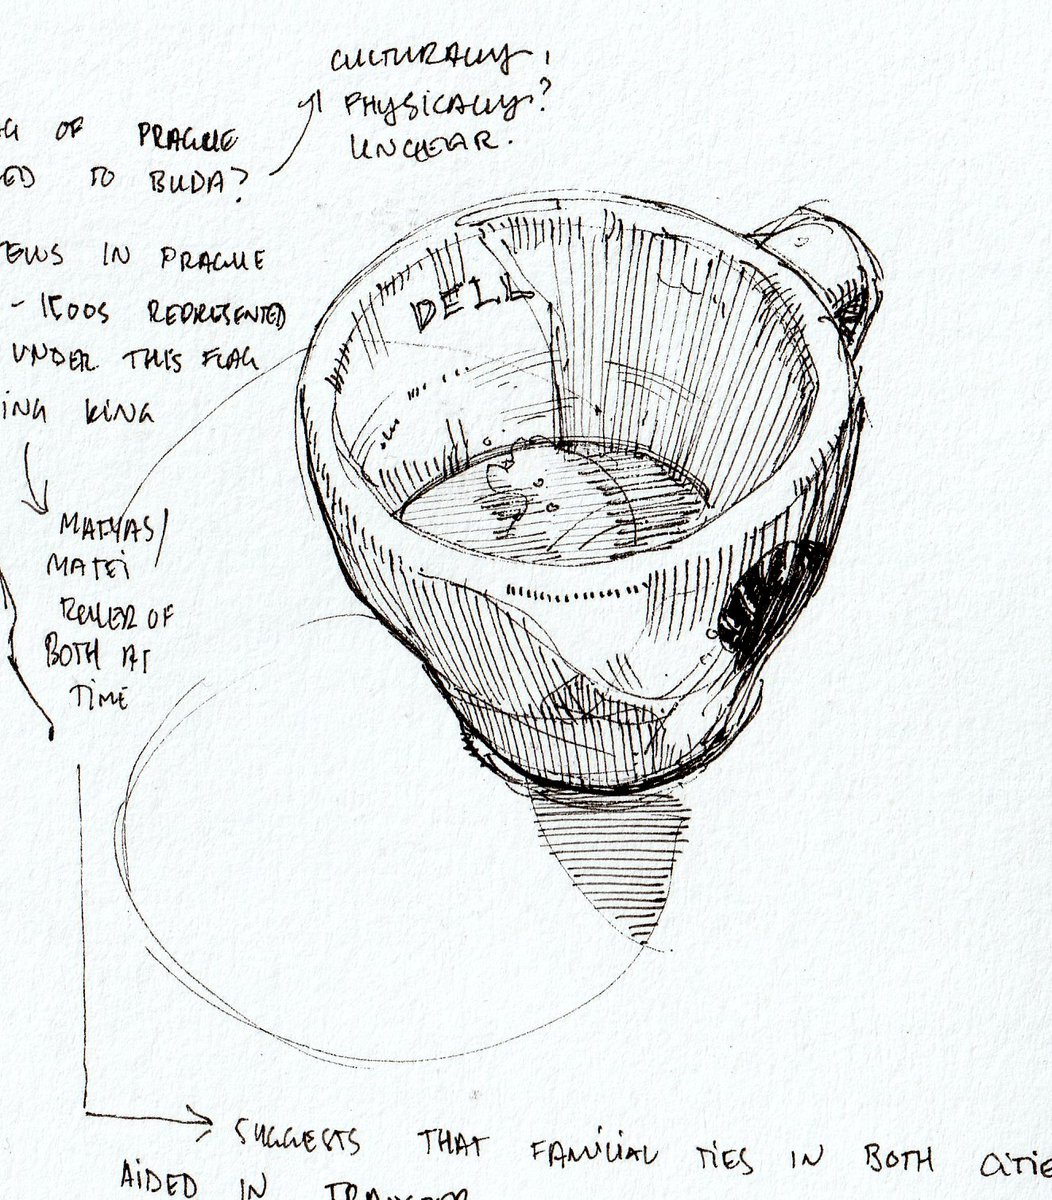 CULTURALLY,
PHYSICALLY?
UNCLEAR.
OF PRAGUE
ED TO BUDA?
JEWS IN PRAGUE
- 1500S REPRESENTED
UNDER THIS FLAG
ING KING
DELL
MATYAS/
MATEI
RULER OF
BOTH AT
TIME
SUGGESTS THAT FAMILIAL TIES IN BOTH CITIE
AIDED IN TRANSFER